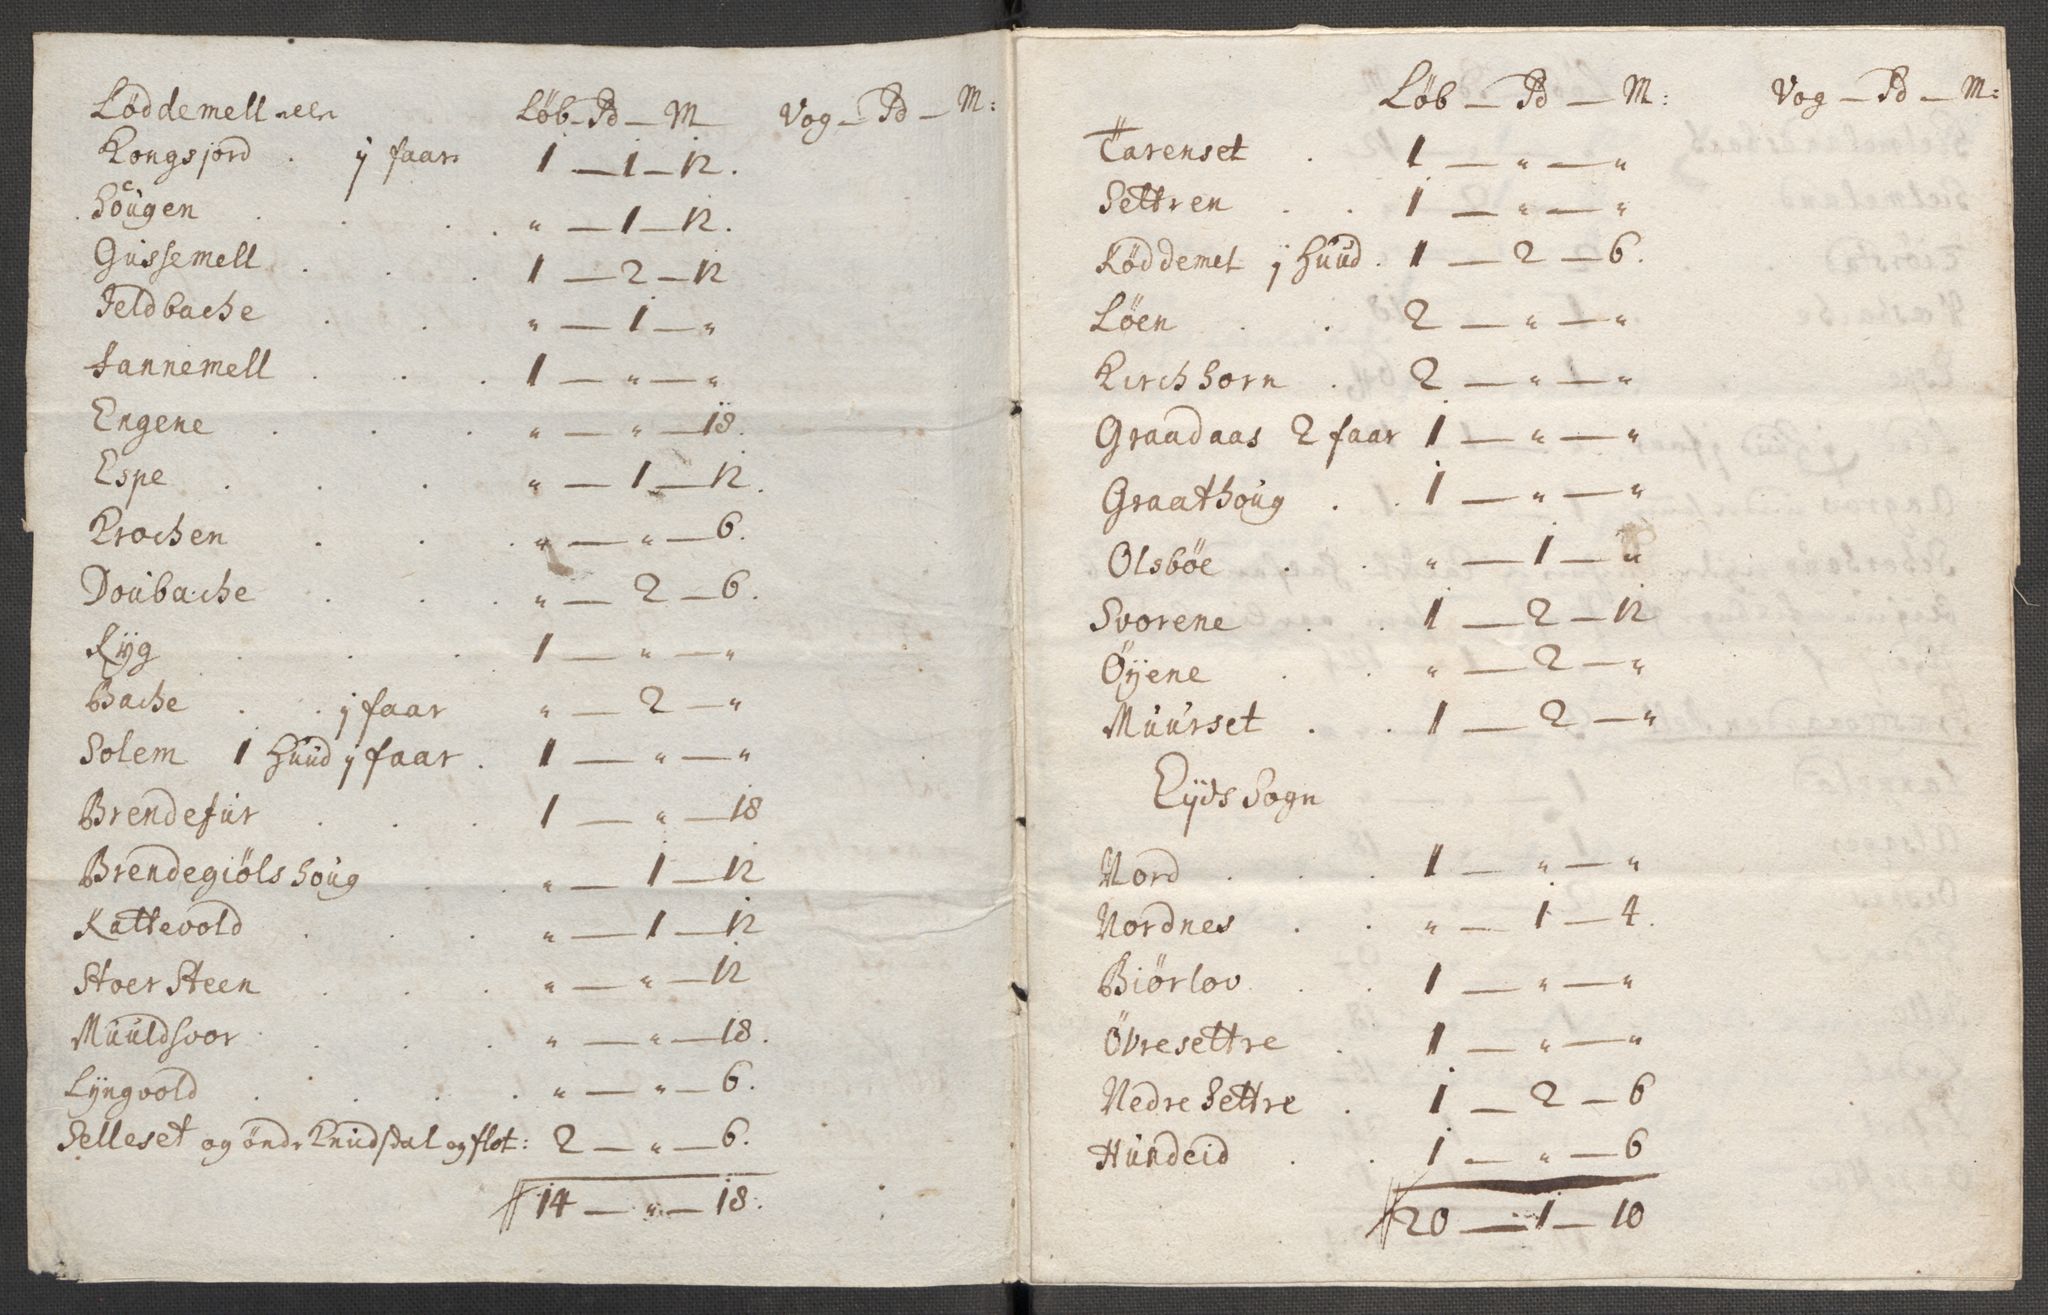 Løddemell Løb - Pd - M Vog - Pd - M:
Kongsjord . ÿ faar 1 - 1 - 12.
Höugen . . . . „ - 1 - 12.
Gussemell . . . 1 - 2 - 12
Feldbache . . „ - 1 - „
Fannemell . . . 1 - „ - „
Engene . . . „ - „ - 18.
Espe . . . „ - 1 - 12.
Krochen . . . „ - „ - 6.
Doubache . . . „ - 2 - 6.
Rÿg . . . 1 - „ - „
Bache . . j faar „ - 2 - „
Solem 1 Huud j faar . 1 - „ - „
Brendefur . . . 1 - „ - 18
Brendegiöls houg . . „ - 1 - 12
Kattevold . . . „ - 1 - 12
Stoer Steen . . . „ - „ - 12
Muuldsvor . . . „ - „ - 18.
Lÿngvold . . . . „ - „ - 6.
Selleset og öndr Knudsdal og flot: 2 - „ - 6.
14 - „ - 18.
Løb - Pd - M: Vog - Pd - M:
Tarenset . 1 - „ - „
Settren . . 1 - „ - „
Løddemel j Huud. 1 - 2 - 6.
Löen . . 2 - „ - „
Kirchhorn . 2 - „ - „
Graadaas 2 faar 1 - „ - „
Graathoug . . 1 - „ - „
Olsböe . . „ - 1 - „
Svorene . . 1 - 2 - 12
Öÿene . . „ - 2 - „
Muurset . . 1 - 2 - „
Eÿds Sogn
Nord . . . 1 - „ - „
Nordnes . . „ - 1 - 4.
Biörlov . . 1 - „ - „
Övresettre . 1 - „ - „
Nedre Settre . 1 - 2 - 6
Hundeid . . 1 - „ - 6
20 - 1 - 10